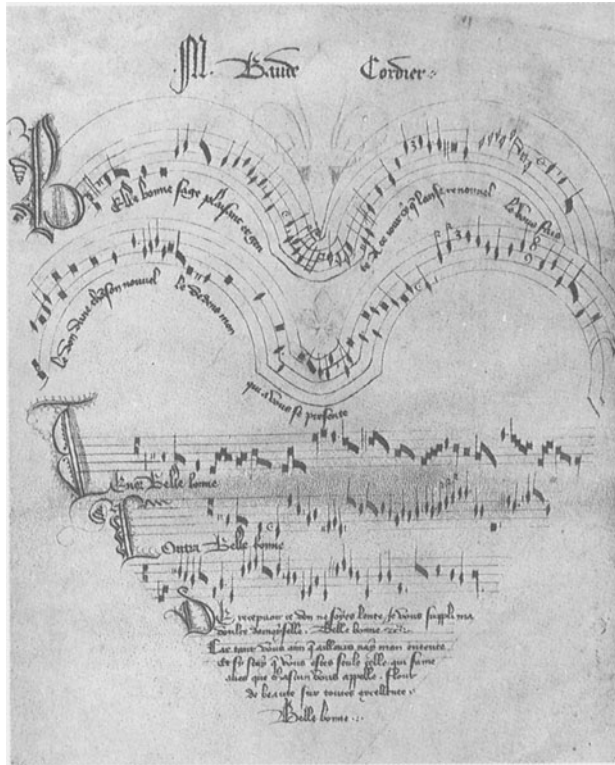 .M. Baude Cordier
Belle bonne sage plaisant et gen
te A ce jour cy q̃ lan se renouvel
Vous fais
Le don dune chãson nouvel
le Dedens mon
qui a vous se presente
Tenor Belle bonne
Contra Belle bonne
De recepvoir ce don ne soyes lente Je vous suppli ma
doulce damoyselle. Belle bonne
Car tant vous aim q̃ ailleurs nay mon entente
Et si scay q̃ vous estes seule celle qui fame
aves que chascun vous appelle. Flour
de beaute sur toutes excellente
Belle bonne